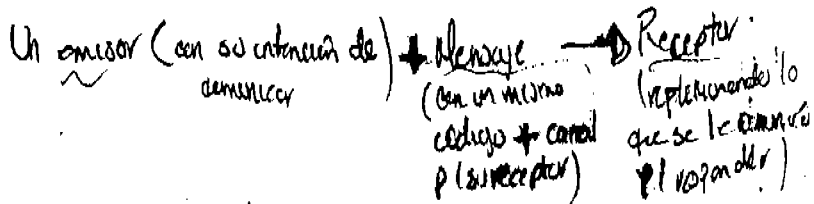 Un emisor (con su intención de comunicar) + Mensaje → Receptor.
(con un mismo código + canal p/su receptor)
(reflexionando lo que se le comunicó p/responder)